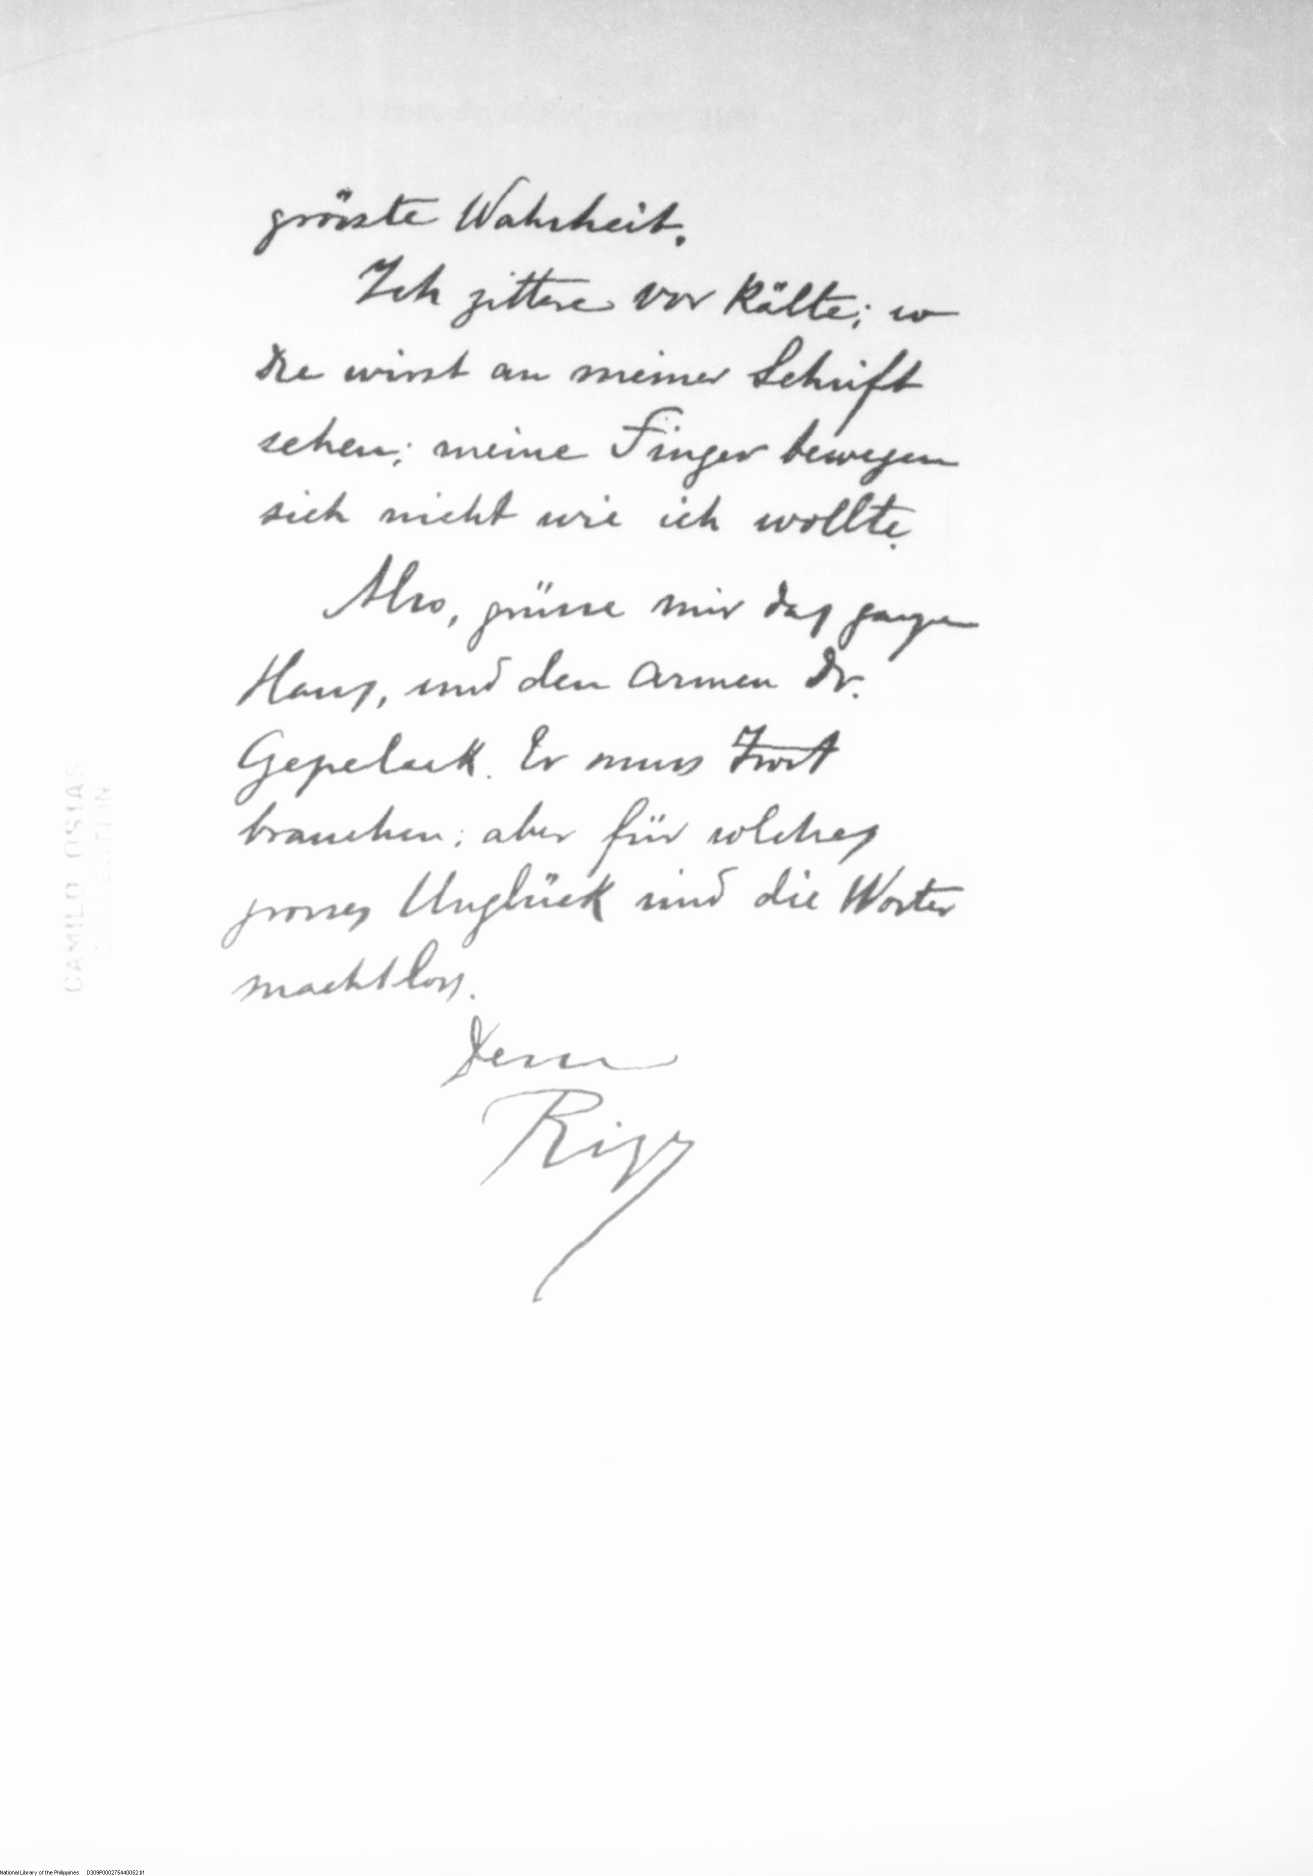 grösste Wahrheit.
Ich zittere vor Kälte; so
Du wirst an meiner Schrift
sehen; meine Finger bewegen
sich nicht wie ich wollte.
Also, grüsse mir das ganzen
Haus, und den armen Dr.
Gepelack. Er muss Trost
brauchen; aber für solches
grosses Unglück sind die Worter
machtlos.
Dein
Rizal
CAMILO OSIAS
National Library of the Philippines